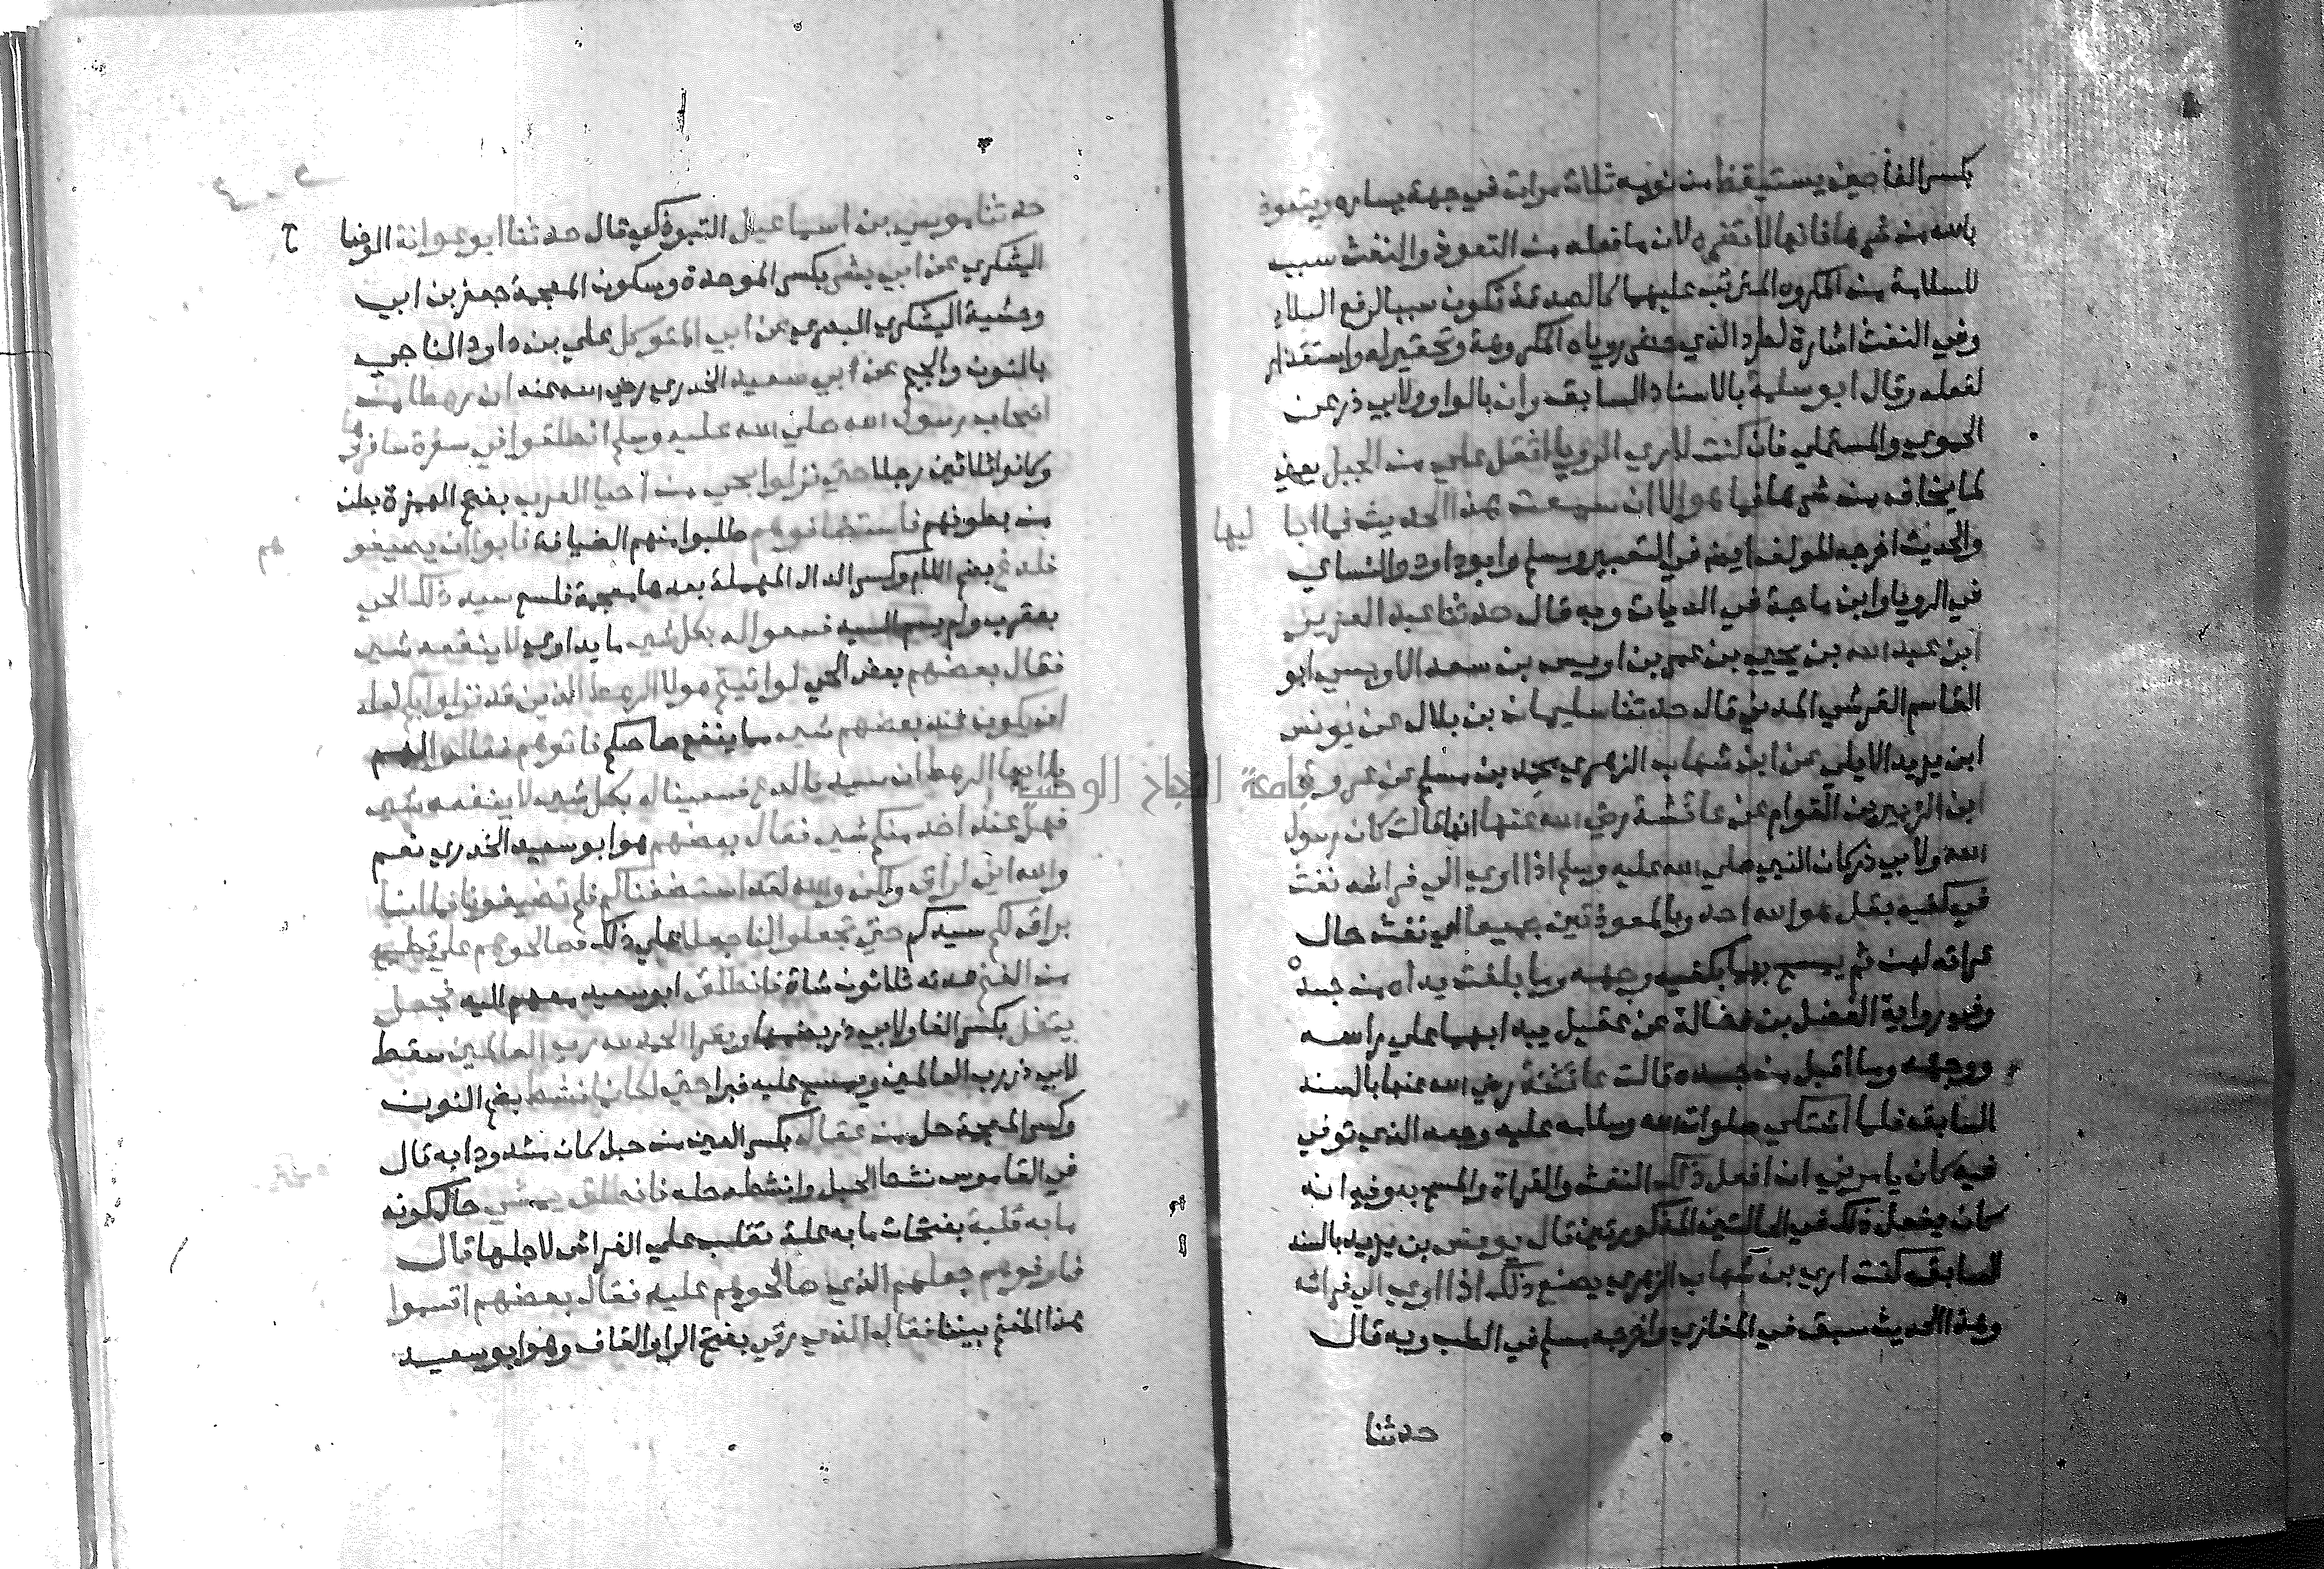 بكسر الفا حين يستيقظ من نومه ثلاث مرات في جهة يساره ويتعوذ
بالله من شرها فانها لا تضره لان ما فعله من التعوذ والنفث سبب
للسلامة من المكروه المترتب عليهما كالصدقة تكون سببا لرفع البلاء
وفي النفث اشارة لطرد الذي حضر روياه المكروهة وتحقير له واستقذار
لفعله وقال ابو سلمة بالاسناد السابق وان بالواو ولابي ذر عن
الحموي والمستملي فان كنت لاري الرويا اثقل علي من الجبل يعني
لما يخاف من شرها فما هو الا ان سمعت هذا الحديث فما ابا ليها
والحديث اخرجه المولف ايض في التعبير ومسلم وابو داود والنساي
في الرويا وابن ماجة في الديات وبه قال حدثنا عبد العزيز
ابن عبد الله بن يحيي بن عمر بن اويس بن سعد الاويسي ابو
القاسم القرشي المدني قال حدثنا سليمان بن بلال عن يونس
ابن يزيد الايلي عن ابن شهاب الزهري محمد بن مسلم عن عروة
ابن الزبير بن العوام عن عائشة رضي الله عنها انها قالت كان رسول
الله ولابي ذر كان النبي صلي الله عليه وسلم اذا اوي الي فراشه نفث
في كفيه بقل هو الله احد وبالمعوذتين جميعا اي نفث حال
قراته لهن ثم يمسح بهما بكفيه وجهه وما بلغت يداه من جسده
وفي رواية الفضل بن فضالة عن عقيل يبدا بهما علي راسه
ووجهه وما اقبل من جسده قالت عائشة رضي الله عنها بالسند
السابق فلما اشتكي صلوات الله وسلامه عليه وجعه الذي توفي
فيه كان يامرني ان افعل ذلك النفث والقراة والمسح به وفيه انه
كان يفعل ذلك في الحالتين المذكورتين قال يونس بن يزيد بالسند
السابق كنت اري بن شهاب الزهري يصنع ذلك اذا اوي الي فراشه
وهذا الحديث سبق في المغازي واخرجه مسلم في الطب وبه قال
حدثنا
حدثنا موسي بن اسماعيل التبوذكي قال حدثنا ابو عوانة الوضا ح
اليشكري عن ابي بشر بكسر الموحدة وسكون المعجمة جعفر بن ابي
وحشية اليشكري البصري عن ابي المتوكل علي بن داود الناجي
بالنون والجيم عن ابي سعيد الخدري رضي الله عنه ان رهطا من
اصحاب رسول الله صلي الله عليه وسلم انطلقوا في سفرة سافرو ها
وكانوا ثلاثين رجلا حتي نزلوا بحي من احيا العرب بفتح الهمزة بطن
من بطونهم فاستضافوهم طلبوا منهم الضيافة فابوا ان يضيفو هم
فلدغ بضم اللام وكسر الدال المهملة بعدها معجمة فلسع سيد ذلك الحي
بعقرب ولم يسم السيد فسعوا له بكل شي ما يداوي لا ينفعه شي
فقال بعضهم بعض الحي لو اتيتم هولا الرهط الذين قد نزلوا بكم لعله
ان يكون عند بعضهم شي مما ينفع صاحبكم فاتوهم فقالوا لهم
يا ايها الرهط ان سيدنا لدغ فسعينا له بكل شي لا ينفعه شي
فهل عند احد منكم شي فقال بعضهم هو ابو سعيد الخدري نعم
والله اني لراق ولكن والله لقد استضفناكم فلم تضيفونا فما انا
براق لكم سيدكم حتي تجعلوا لنا جعلا علي ذلك فصالحوهم علي قطيع
من الغنم عدته ثلاثون شاة فانطلق ابو سعيد معهم اليه فجعل
يتفل بكسر الفا ولابي ذر بضمها ويقرا الحمد لله رب العالمين سقط
لابي ذر رب العالمين ويمسح عليه فبرا حتي لكانما نشط بضم النون
وكسر المعجمة حل من عقال بكسر العين من حبل كان مشدودا به قال
في القاموس نشط الحبل وانشطه حله فانطلق يمشي حال كونه
ما به قلبة بفتحات ما به علة تقلب علي الفراش لاجلها قال
فاوفوهم جعلهم الذي صالحوهم عليه فقال بعضهم اقسموا
هذا الغنم بيننا فقال الذي رقي بفتح الرا والقاف وهو ابو سعيد